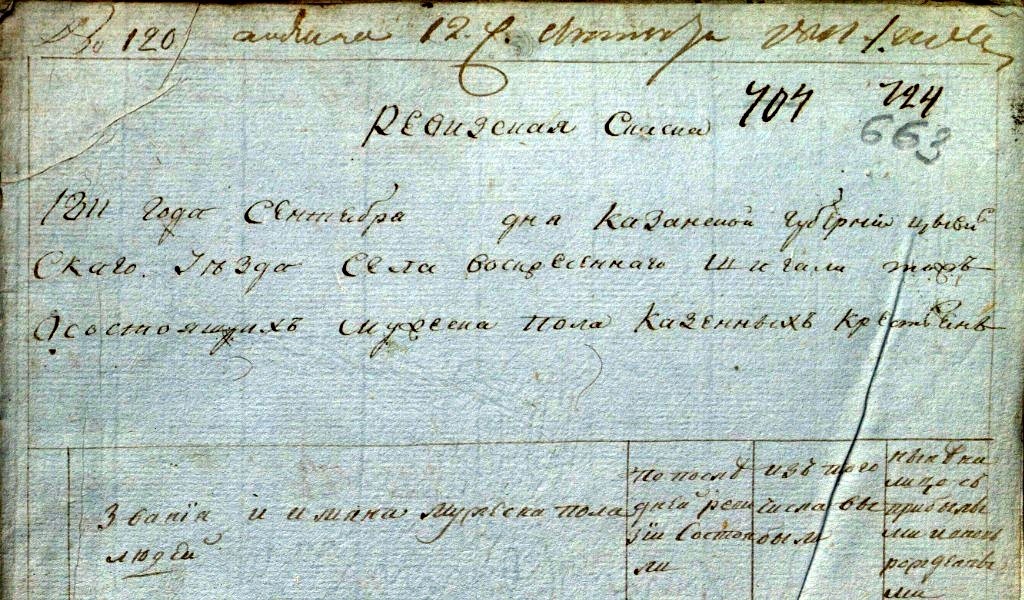 № 120 12. С.
707 724
Ревизская Скаска 663
1811 года Сентебра дня Казанской Губерніи цывил
Скаго Уѣзда Села воскресеннаго Шигали тожъ
О состоящихъ мужеска Пола Казенныхъ Крестьенъ
Званія и имяна мужеска пола
людей
По послѣ
дней реви
зіи Состоя
ли
изъ того
числа вы
были
нынѣ на
лицо съ
прибылы
ми и вновь
рожденны
ми